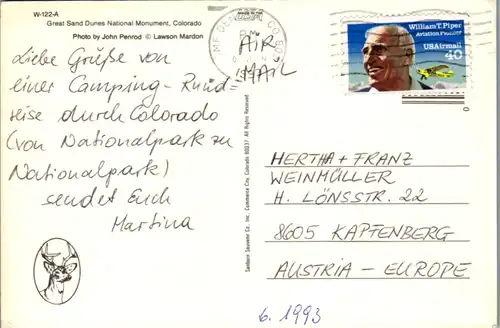 W-122-A
Great Sand Dunes National Monument, Colorado
Photo by John Penrod © Lawson Mardon
AIR
MAIL
William T. Piper
Aviation Pioneer
USAirmail
40
Liebe Grüße von
einer Camping-Rund
reise durch Colorado
(von Nationalpark zu
Nationalpark)
sendet Euch
Martina
Sanborn Souvenir Co., Inc. Commerce City, Colorado 80037. All Rights Reserved
HERTHA + FRANZ
WEINMÜLLER
H. LÖNSSTR. 22
8605 KAPFENBERG
AUSTRIA - EUROPE
6. 1993